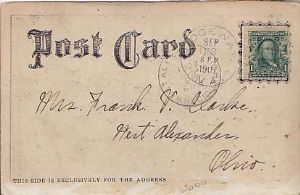 Post Card
SEP
1907
Mrs. Frank Y Clarke,
West Alexander
Ohio.
THIS SIDE IS EXCLUSIVELY FOR THE ADDRESS
2000